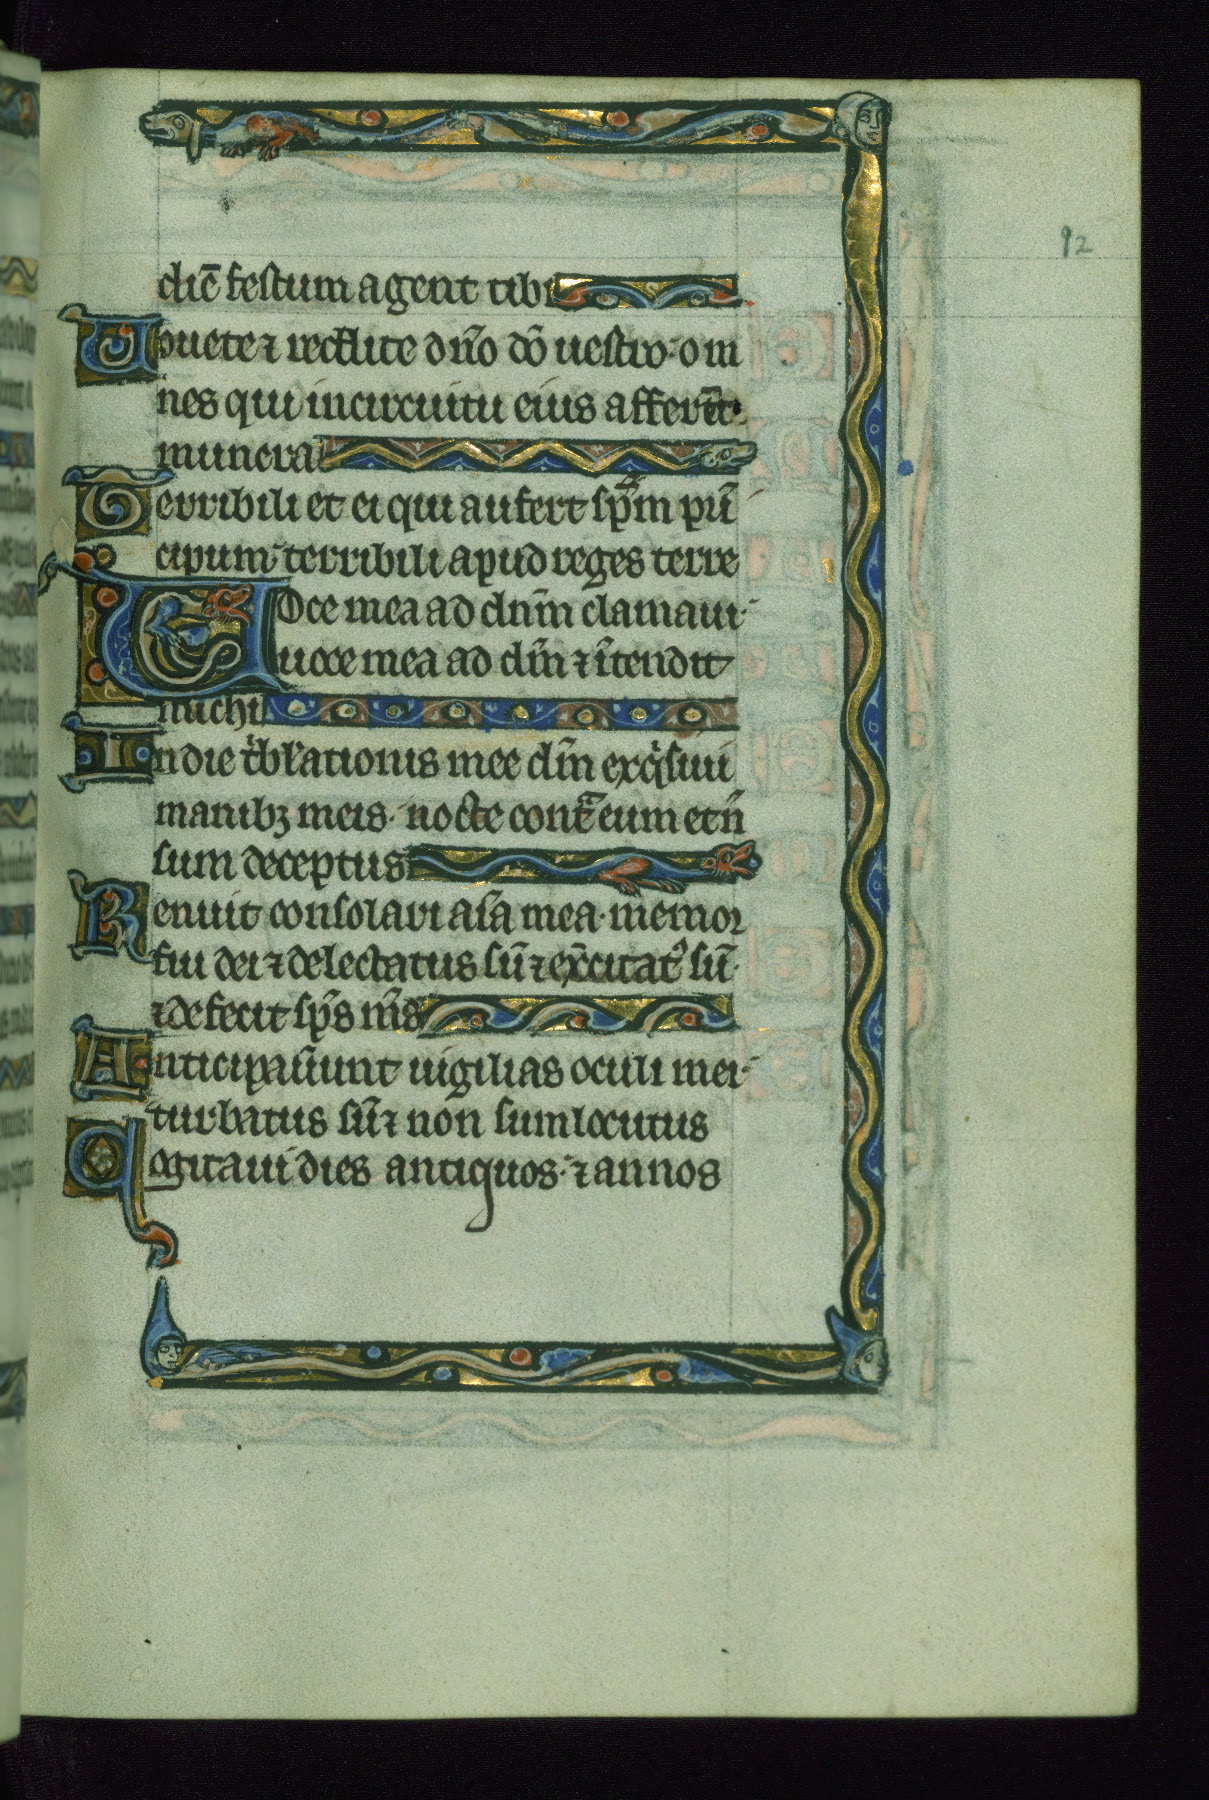 92
diē festum agent tibi
Uouete ⁊ reddite dn̄o dō uestro· om
nes qui in circuitu eius afferūt
munera
Terribili et ei qui aufert sp̄m prī
cipum· terribili apud reges terre
Uoce mea ad dnm̄ clamaui·
uoce mea ad dm̄ ⁊ ītendit
michi
In die t̾blationis mee dm̄ exqͥsiui
manibꝫ meis· nocte contͣ eum et n̄
sum deceptus
Renuit consolari aīa mea· memor
fui dei ⁊ delectatus sū ⁊ ex̄citatꝰ sū·
⁊ defecit sp̄s m̄s
Anticipauer̄unt uigilias oculi mei·
turbatus sū ⁊ non sum locutus
Cogitaui dies antiquos· ⁊ annos